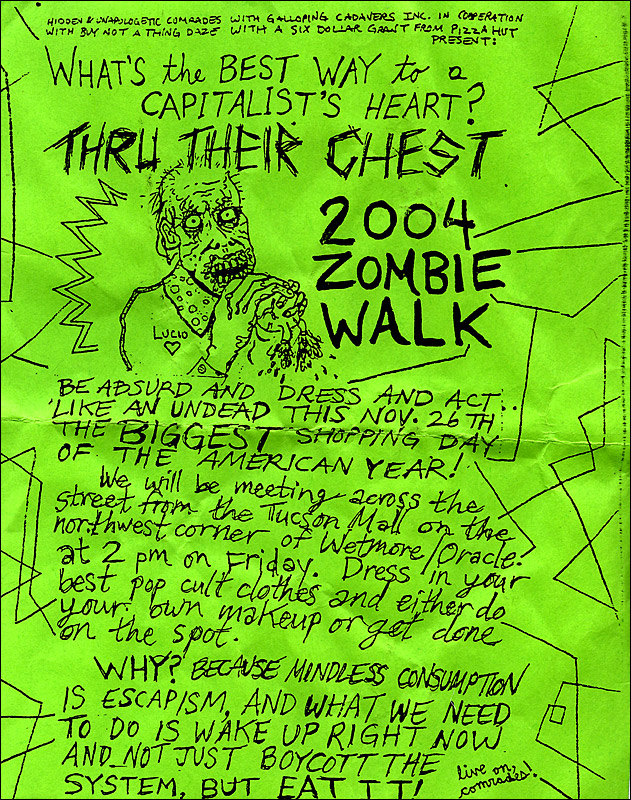 HIDDEN & UNAPOLOGETIC COMRADES WITH GALLOPING CADAVERS INC. IN COOPERATION
WITH BUY NOT A THING DAZE WITH A SIX DOLLAR GRANT FROM PIZZA HUT
PRESENT:
WHAT'S the BEST WAY to a
CAPITALIST'S HEART?
THRU THEIR CHEST
2004
ZOMBIE
WALK
LUCIO
BE ABSURD AND DRESS AND ACT
LIKE AN UNDEAD THIS NOV. 26TH
THE BIGGEST SHOPPING DAY
OF THE AMERICAN YEAR!
We will be meeting across the
street from the Tucson Mall on the
northwest corner of Wetmore/Oracle
at 2 pm on Friday. Dress in your
best pop cult clothes and either do
your own makeup or get done
on the spot.
WHY? BECAUSE MINDLESS CONSUMPTION
IS ESCAPISM, AND WHAT WE NEED
TO DO IS WAKE UP RIGHT NOW
AND NOT JUST BOYCOTT THE
SYSTEM, BUT EAT IT!
live on,
comrades!